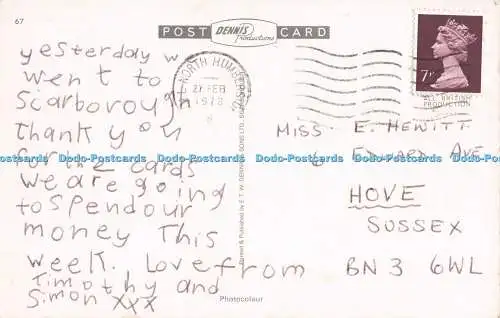 67
POST DENNIS Productions CARD
yesterday w
went to
Scarborough
thank you
for the cards
we are going
to spend our
money This
week. Love from
Timothy and
Simon xxx
NORTH HUMBERSIDE
27 FEB
1978
7P
ALL BRITISH
PRODUCTION
MISS E. HEWITT
6 EDWARD AVE
HOVE
SUSSEX
BN3 6WL
Printed & Published by E. T. W. DENNIS & SONS LTD.
Photocolour
Dodo-Postcards Dodo-Postcards Dodo-Postcards Dodo-Postcards Dodo-Postcards